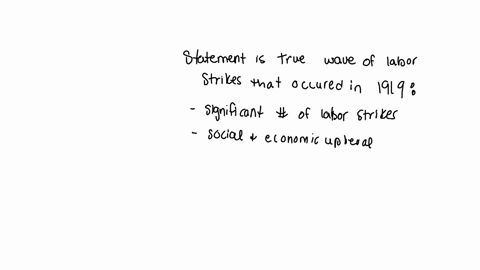 Statement is true wave of labor
strikes that occured in 1919:
- significant # of labor strikes
- social + economic upheaval